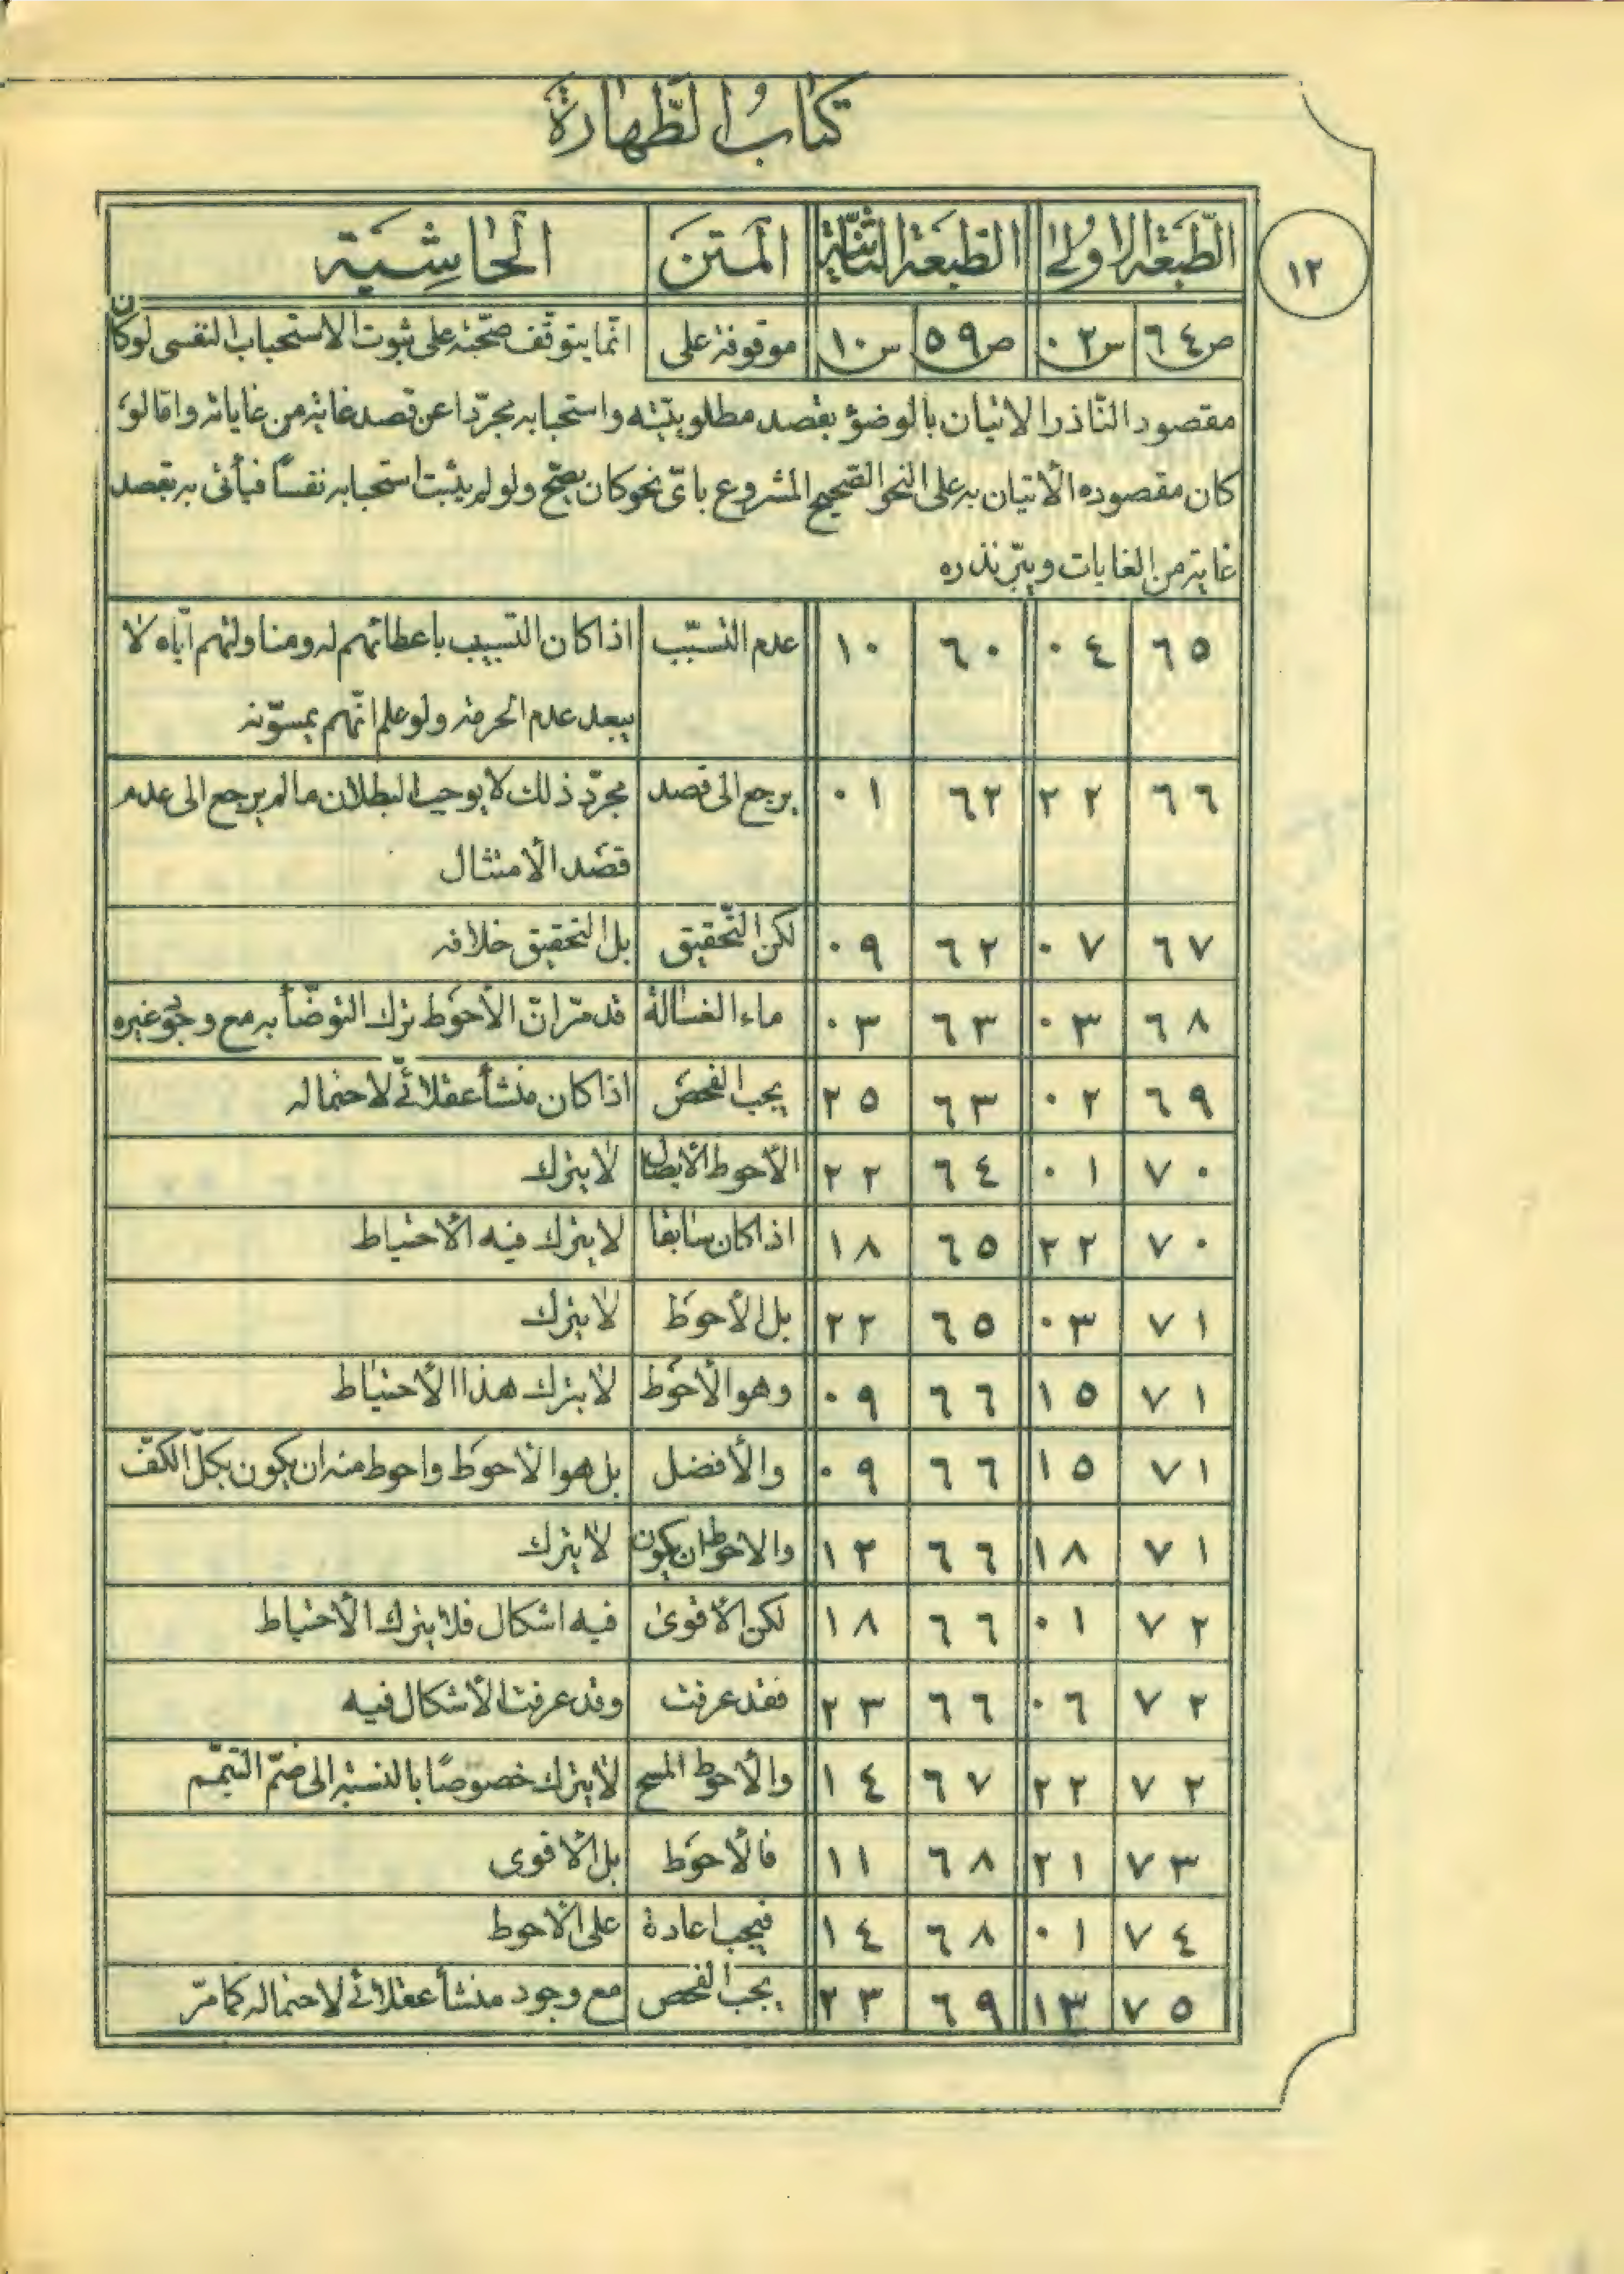 كتاب الطّهارة
١٢
الطّبعة الاولى الطّبعة الثّانية المتن الحاشية
ص٦٤ س٠٢ ص٥٩ س١٠ موقوفة على انّما يتوقّف صحّته على ثبوت الاستحباب النفسى لو كان
مقصود النّاذر الاتيان بالوضوء بقصد مطلوبيّته واستحبابه مجرّدا عن قصد غاية من غاياته وامّا لو
كان مقصوده الأتيان به على النحو الصّحيح المشروع باىّ نحو كان يصحّ ولو لم يثبت استحبابه نفساً فيأتى به بقصد
غاية من الغايات ويبرّ نذره
٦٥ ٠٤ ٦٠ ١٠ عدم التسبّب اذا كان التسبيب باعطائهم له ومناولتهم ايّاه لا
يبعد عدم الحرمة ولو علم انّهم يمسّونه
٦٦ ٢٢ ٦٢ ٠١ يرجع الى قصد مجرّد ذلك لا يوجب البطلان ما لم يرجع الى عدم
قصد الأمتثال
٦٧ ٠٧ ٦٢ ٠٩ لكن التّحقيق بل التحقيق خلافه
٦٨ ٠٣ ٦٣ ٠٣ ماء الغسالة قد مرّ انّ الأحوط ترك التوضّأ به مع وجود غيره
٦٩ ٠٢ ٦٣ ٢٥ يجب الفحص اذا كان منشأ عقلائىّ لأحتماله
٧٠ ٠١ ٦٤ ٢٢ الأحوط الأيصال لا يترك
٧٠ ٢٢ ٦٥ ١٨ اذا كان سابقا لا يترك فيه الأحتياط
٧١ ٠٣ ٦٥ ٢٢ بل الأحوط لا يترك
٧١ ١٥ ٦٦ ٠٩ وهو الأحوط لا يترك هذا الأحتياط
٧١ ١٥ ٦٦ ٠٩ والأفضل بل هو الأحوط واحوط منه ان يكون بكلّ الكفّ
٧١ ١٨ ٦٦ ١٢ والاحوط ان يكون لا يترك
٧٢ ٠١ ٦٦ ١٨ لكن الأقوى فيه اشكال فلا يترك الأحتياط
٧٢ ٠٦ ٦٦ ٢٣ فقد عرفت وقد عرفت الأشكال فيه
٧٢ ٢٢ ٦٧ ١٤ والأحوط المسح لا يترك خصوصًا بالنسبة الى ضمّ التيمّم
٧٣ ٢١ ٦٨ ١١ فالأحوط بل الأقوى
٧٤ ٠١ ٦٨ ١٤ فيجب اعادة على الأحوط
٧٥ ١٣ ٦٩ ٢٣ يجب الفحص مع وجود منشأ عقلائى لاحتماله كما مرّ